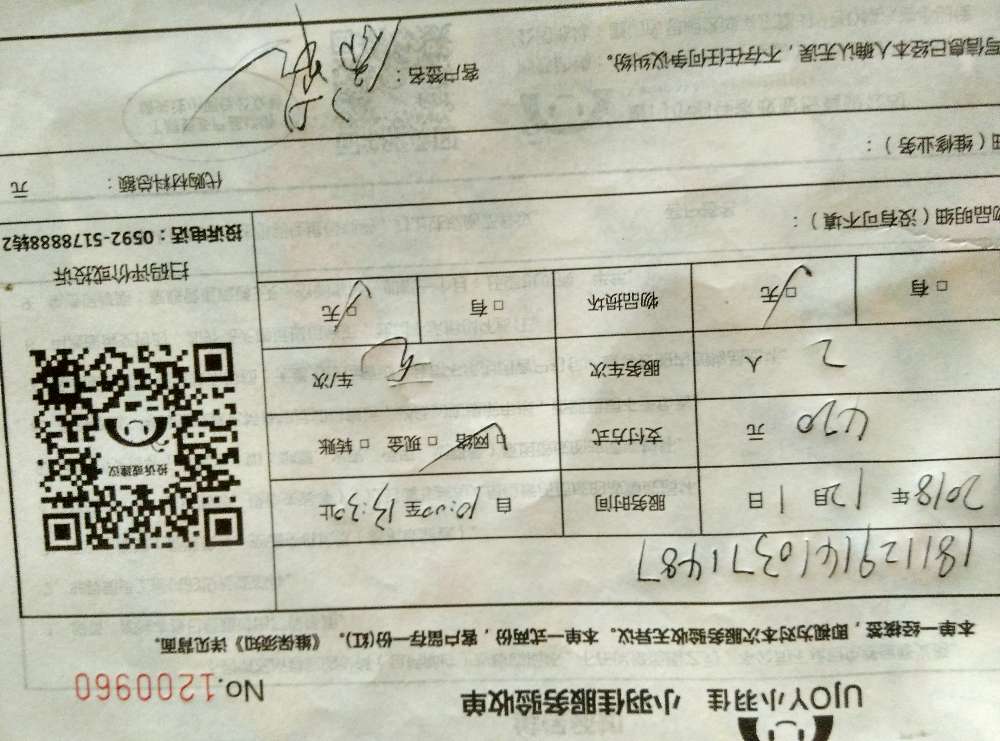 UJOY小羽佳 小羽佳服务验收单
No.1200960
本单一经接签，即视为对本次服务验收无异议。本单一式两份，客户留存一份(红)。《维保须知》详见背面。
1811291610371487
2018年 12月 1日 服务时间 自 10:00至 13:30止
420 元 支付方式 □ 网络 □ 现金 □ 转账
2 人 服务车次 车/次
□ 有 □ 无 物品损坏 □ 有 □ 无
投诉或建议
扫码评价或投诉
投诉电话：0592-5178888转2
物品明细（没有可不填）：
代购材料总额： 元
细（维修业务）：
写信息已经本人确认无误，不存在任何争议纠纷。 客户签名：